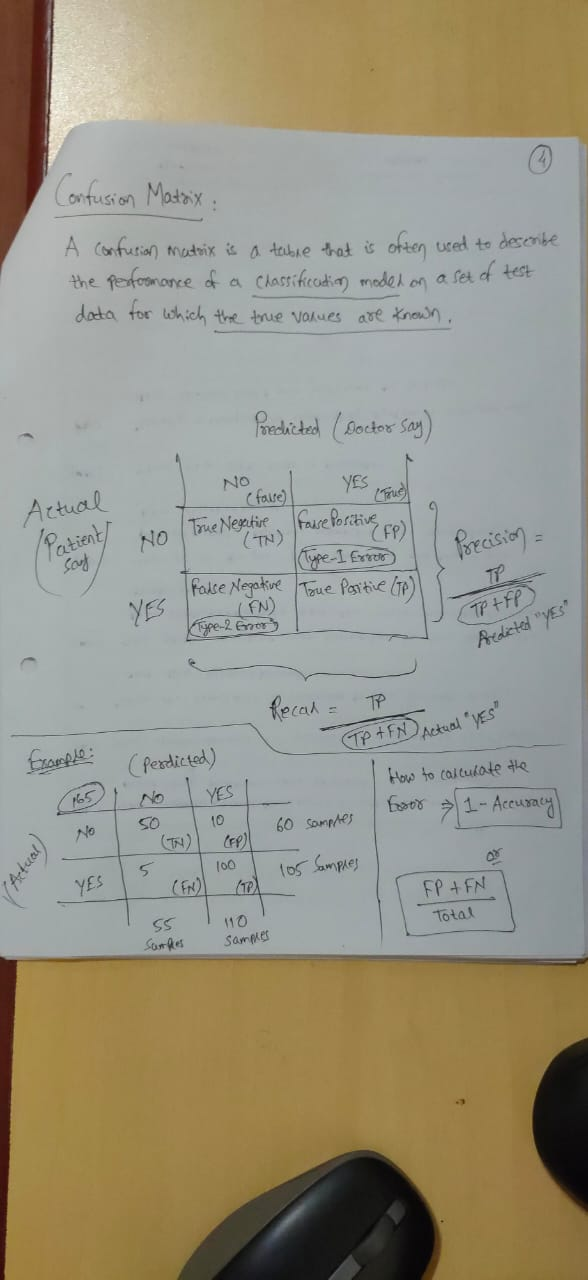 4
Confusion Matrix :
A confusion matrix is a table that is often used to describe
the performance of a classification model on a set of test
data for which the true values are known.
Predicted (Doctor say)
NO
(false)
YES
(True)
Actual
(Patient
say)
NO
True Negative
(TN)
False Positive
(FP)
Type-1 Error
YES
False Negative
(FN)
Type-2 Error
True Positive (TP)
Precision =
TP
TP + FP
Predicted "YES"
Recall = TP
TP + FN Actual "YES"
Example:
(Perdicted)
165 NO YES
(Actual)
NO 50 10 60 samples
(TN) (FP)
YES 5 100 105 Samples
(FN) (TP)
55 110
Samples samples
How to calculate the
Error ⇒ 1 - Accuracy
or
FP + FN
Total